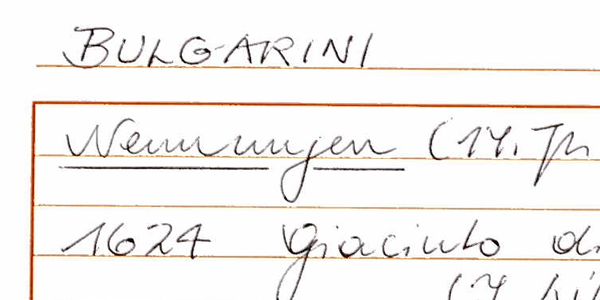 BULGARINI
Nennungen (17. Jh
1624 Giacinto di
(7